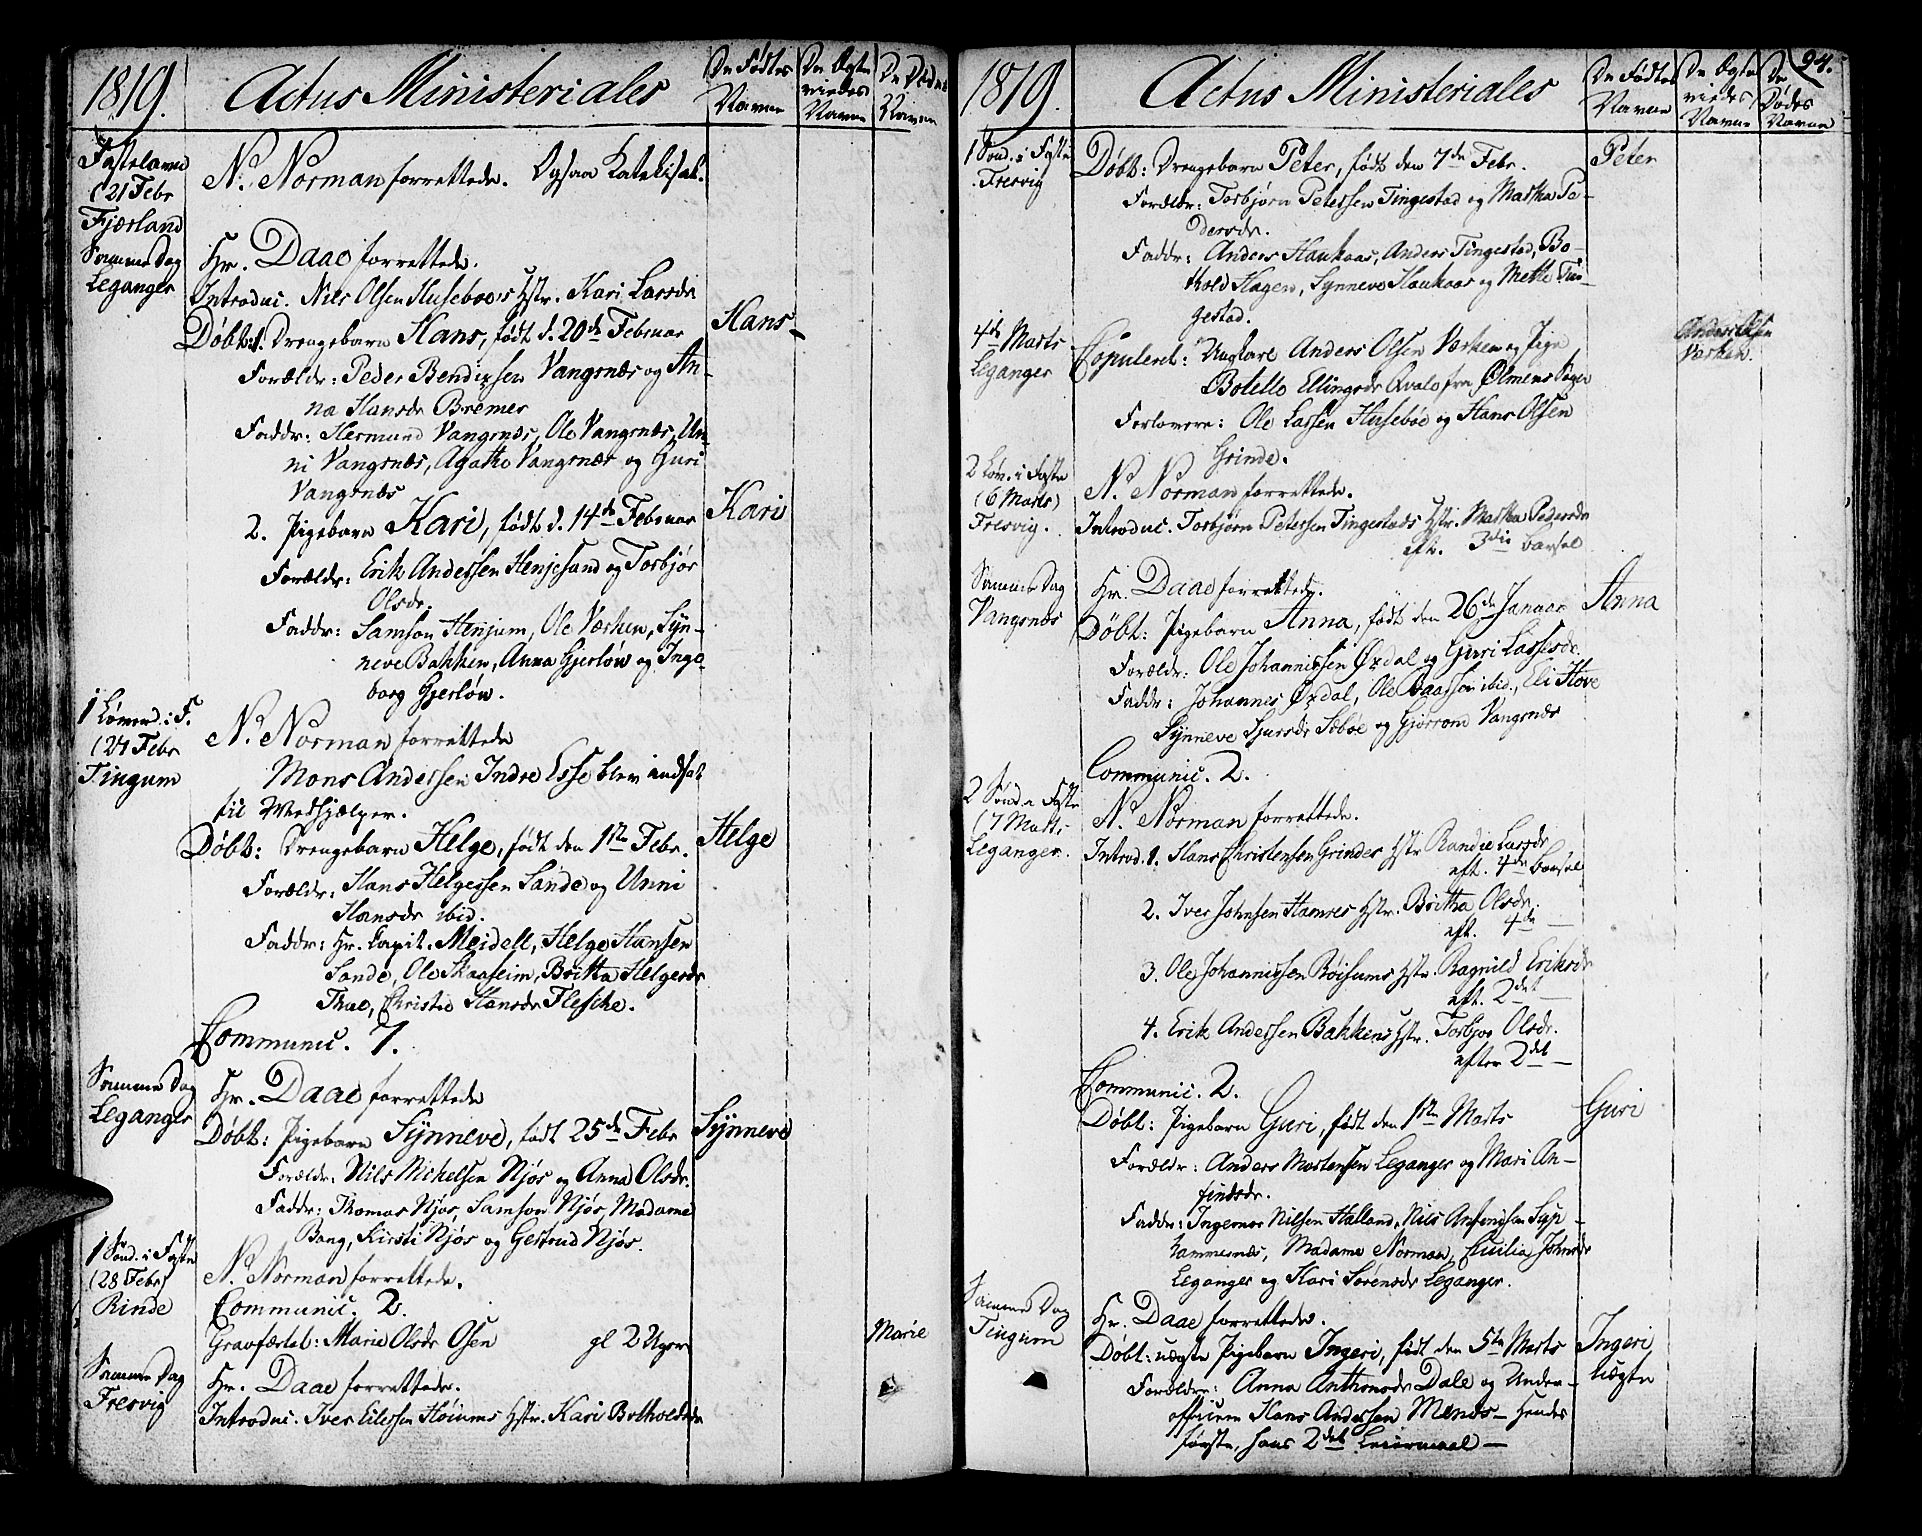 1819.
Actus Ministeriales
De Fødtes Navne
De Ægteviedes Navne
De Dødes Navne
Fastelavn
(21 Febr
Fjærland
N. Norman forrettede. Ogsaa Katekisat.
Samme Dag
Leganger
Hr. Daae forrettede.
Introduc. Nils Olsen Huseboes Hstr. Kari Larsdr
Døbt: 1. Drengebarn Hans, født d. 20de Februar
Hans
Forældr: Peder Bendixsen Vangsnæs og An-
na Hansdr Bremer
Faddr: Hermund Vangsnæs, Ole Vangsnæs, Un-
ni Vangsnæs, Agathe Vangsnæs og Guri
Vangsnæs
2. Pigebarn Kari, født d. 14de Februar
Kari
Forældr: Erik Andersen Henjesand og Torbjør
Olsdr.
Faddr: Samson Henjum, Ole Værken, Syn-
neve Bakken, Anna Gjerløw og Inge-
borg Gjerløw.
1 Løverd. i F.
(27 Febr
Tingum
N. Norman forrettede
Mons Andersen Indre Esse blev indsat
til Medhjælper.
Døbt: Drengebarn Helge, født den 1ste Febr.
Helge
Forældr: Hans Helgessen Sande og Unni
Hansdr ibid.
Faddr: Hr. Capit. Meidell, Helge Hansen
Sande, Ole Skaaseim, Britta Helgesdr
Thue, Christie Hansdr Flesche.
Communic. 7.
Samme Dag
Leganger
Hr. Daae forrettede
Døbt: Pigebarn Synneve, født 25de Febr
Synneve
Forældr: Nils Michelsen Njøs og Anna Olsdr.
Faddr: Thomas Njøs, Samson Njøs, Madame
Bang, Kirsti Njøs og Gertrud Njøs.
1 Sønd. i Faste
(28 Febr)
Rinde
N. Norman forrettede.
Communic. 2.
Gravfæstet: Marie Olsdr Osen gl 2 Uger
Marie
Samme Dag
Fresvig
Hr. Daae forrettede.
Introduc. Iver Eilessen Høiums Hstr. Kari Botholdsdr
1819.
Actus Ministeriales
De Fødtes Navne
De Ægteviedes Navne
De Dødes Navne
94.
1 Sønd. i Faste
Fresvig
Døbt: Drengebarn Peter, født den 7de Febr.
Peter
Forældr: Torbjørn Petersen Tingestad og Martha Pe-
dersdr.
Faddr: Anders Haukaas, Anders Tingestad, Bo-
thold Hagen, Synneve Haukaas og Mette Tin-
gestad.
4de Marts
Leganger
Copuleret: Ungkarl Anders Olsen Værken og Pige
Anders Olsen
Værken.
Botello Ellingsdr Qvale fra Ølmens Sogn
Forlovere: Ole Lassen Husebøe og Hans Olsen
Grinde.
2 Løv. i Faste
(6 Marts)
Fresvig.
N. Norman forrettede.
Introduc. Torbjørn Petersen Tingestads Hstr. Martha Pedersdr
eft. 3die Barsel
Samme Dag
Vangsnæs
Hr. Daae forrettede.
Døbt: Pigebarn Anna, født den 26de Januar
Anna
Forældr: Ole Johannissen Øxdal og Guri Lassesdr.
Faddr: Johannis Øxdal, Ole ibid., Eli Hove
Synneve Sjursdr Sæbøe og Gjørrond Vangsnæs
Communic. 2.
2 Sønd i Faste
(7 Marts
Leganger.
N. Norman forrettede.
Introd. 1. Hans Christensen Grindes Hstr Randie Larsdr
eft. 4de Barsel
2. Iver Johnsen Hamres Hstr. Britha Olsdr.
eft. 4de —
3. Ole Johannissen Røisums Hstr. Ragnild Eriksdr
eft. 2det —
4. Erik Andersen Bakkens Hstr. Torbjør Olsdr.
efter 2det —
Communic. 2.
Døbt: Pigebarn Guri, født den 1ste Marts
Guri
Forældr: Anders Mortensen Leganger og Mari An-
findsdr.
Faddr: Ingemar Nilsen Halland, Nils Anfindsen Syp-
hammernæs, Madame Norman, Cecilia Johnsdr
Leganger og Kari Sørensdr Leganger.
Samme Dag
Tingum
Hr. Daae forrettede.
Døbt: uægte Pigebarn Ingeri, født den 5te Marts
Ingeri,
uægte
Forældre: Anna Anthonsdr Dale og Under-
officeer Hans Andersen Menæs — Hendes
første, hans 2det Leiermaal —